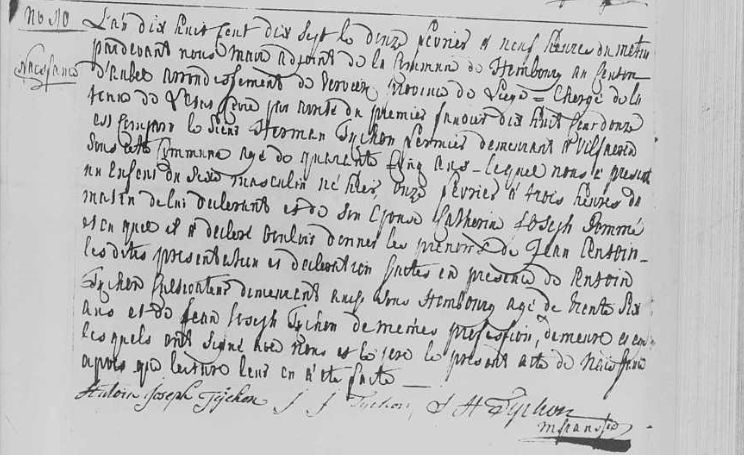 No 10
Naissance
L'an dix huit cent dix sept le douze février à neuf heures du matin
pardevant nous maire adjoint de la commune de Hembourg au Canton
d'Aubel arrondissement de Verviers province de Liege = Chargé de la
tenue de L'etat Civil par arreté du premier janvier dix huit cent douze
est comparu le Sieur Herman Tychon fermier demeurant à
Sous cette Commune agé de quarante Cinq ans lequel nous a presenté
un Enfant du Sexe masculin né hier, onze février à trois heures du
matin de lui declarant et de Son Epouse Catherine Joseph
et auquel il a declaré vouloir donner les prenoms de Jean Antoin
les dites presentation et declaration faites en presence de Antoin
Tychon demeurant aussi Sous Hembourg agé de trente Six
ans et de Jean Joseph Tychon de mêmes profession, demeure et
lesquels ont Signé avec Nous et le pere le present acte de Naissance
apres que lecture leur en a été faite
Antoin Joseph Tÿchon J J Tychon J H Tychon